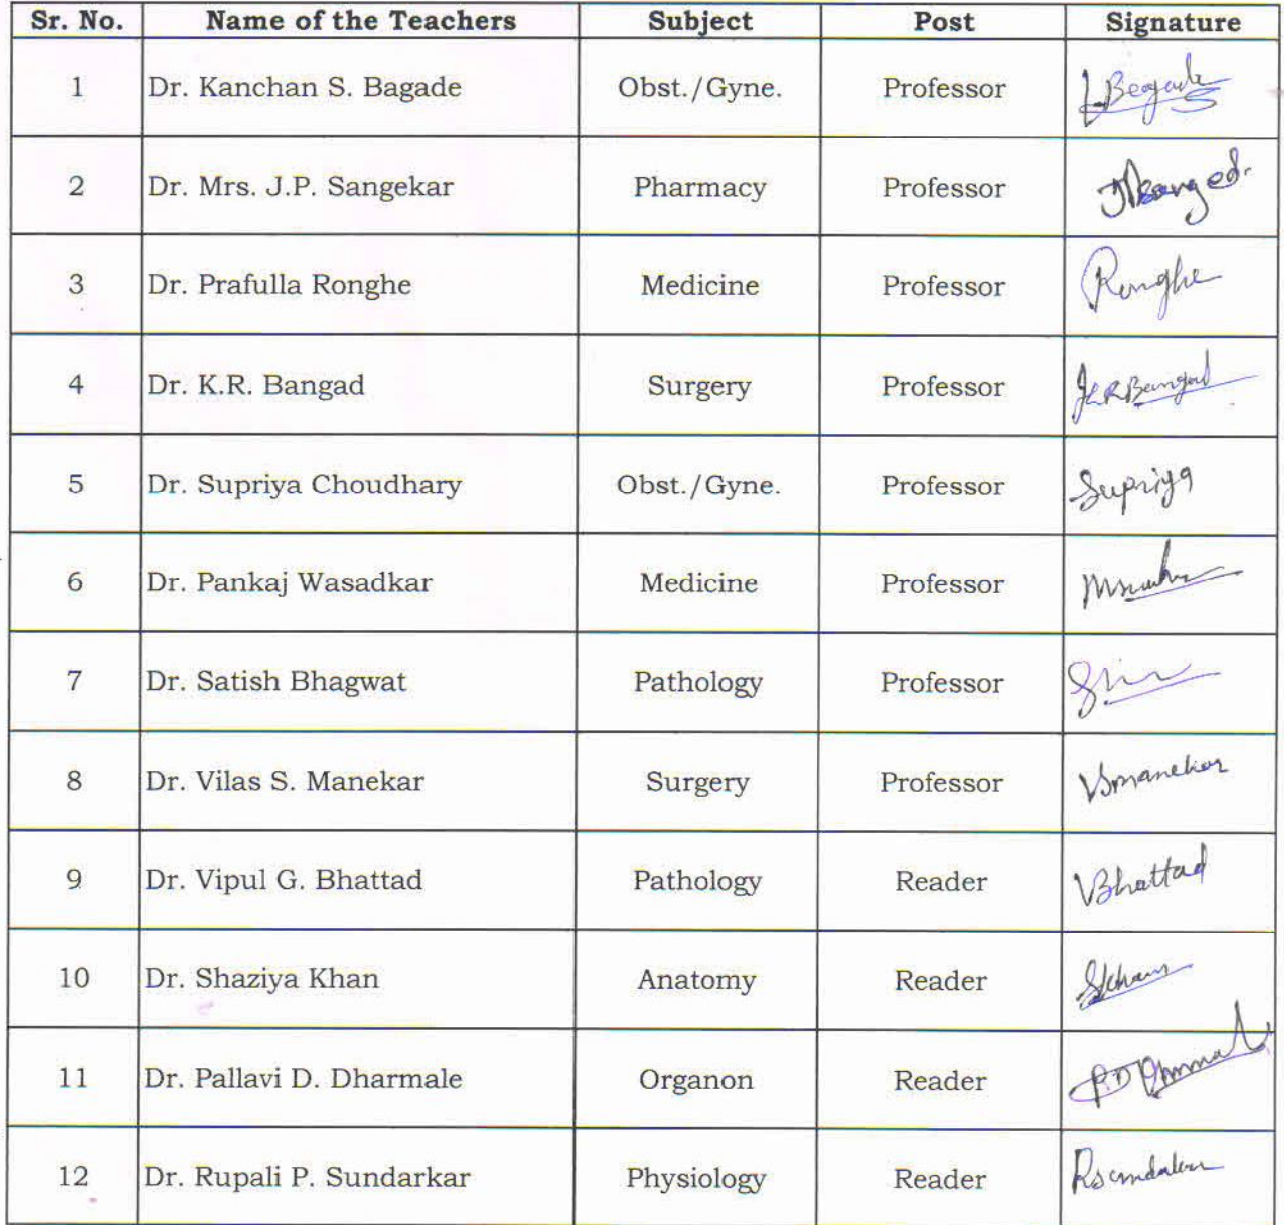 Sr. No. Name of the Teachers Subject Post Signature
1 Dr. Kanchan S. Bagade Obst./Gyne. Professor
2 Dr. Mrs. J.P. Sangekar Pharmacy Professor
3 Dr. Prafulla Ronghe Medicine Professor Ronghe
4 Dr. K.R. Bangad Surgery Professor
5 Dr. Supriya Choudhary Obst./Gyne. Professor Supriya
6 Dr. Pankaj Wasadkar Medicine Professor
7 Dr. Satish Bhagwat Pathology Professor
8 Dr. Vilas S. Manekar Surgery Professor VSmanekar
9 Dr. Vipul G. Bhattad Pathology Reader VBhattad
10 Dr. Shaziya Khan Anatomy Reader
11 Dr. Pallavi D. Dharmale Organon Reader
12 Dr. Rupali P. Sundarkar Physiology Reader